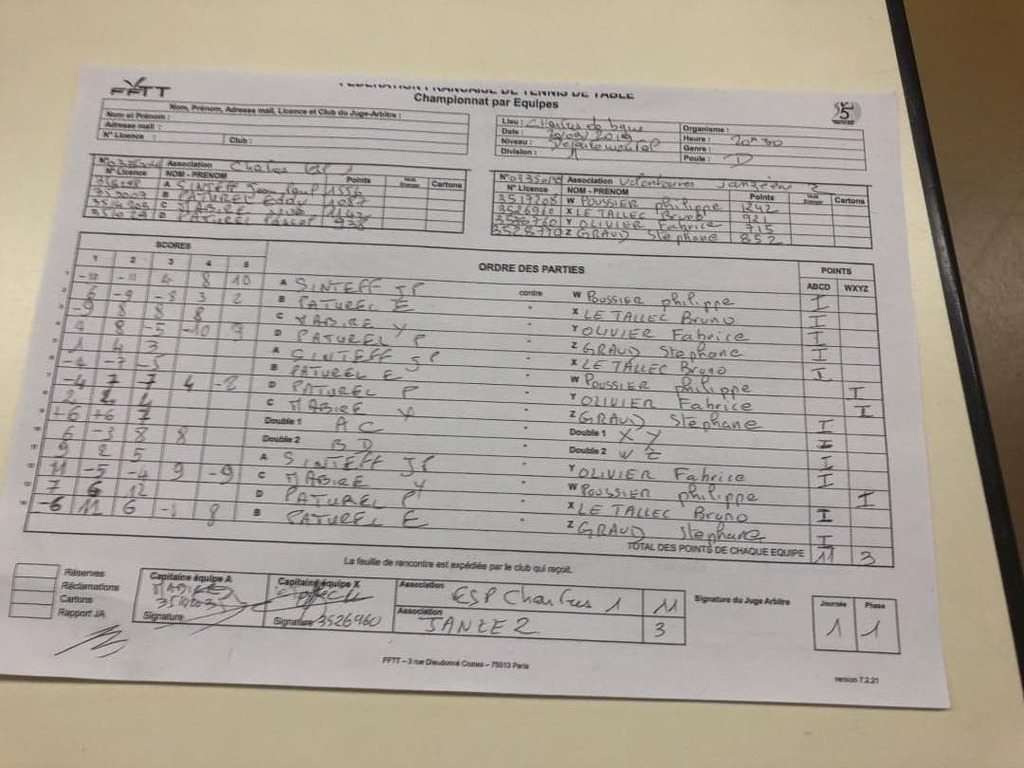 FFTT
FÉDÉRATION FRANÇAISE DE TENNIS DE TABLE
Championnat par Equipes
Nom, Prénom, Adresse mail, Licence et Club du Juge-Arbitre :
Nom et Prénom :
Adresse mail :
N° Licence Club :
Lieu : Chartres de Bgne Organisme :
Date : 2019 Heure : 20h30
Niveau : Départemental Genre :
Division : A Poule : D
Association Chartres ESP 1
N° Licence NOM - PRENOM Points Cartons
A SINTEFF Jean Paul 1556
B PATUREL Eddy 1087
C MABIRE
D PATUREL Pascal 938
Association Volontaires Janzéen 2
N° Licence NOM - PRENOM Points Cartons
3519208 W POUSSIER philippe 1242
3526960 X LE TALLEC Bruno 921
Y OLIVIER Fabrice 715
Z GRAUD Stephane 852
SCORES ORDRE DES PARTIES POINTS
1 2 3 4 5 ABCD WXYZ
-10 -11 4 8 10 A SINTEFF JP contre W POUSSIER philippe I
6 -9 -8 3 2 B PATUREL E X LE TALLEC Bruno I
-9 8 8 8 C MABIRE Y Y OLIVIER Fabrice I
4 8 -5 -10 9 D PATUREL P Z GRAUD Stephane I
1 4 3 A SINTEFF JP X LE TALLEC Bruno I
-4 -7 -5 B PATUREL E W POUSSIER philippe I
-4 7 -7 4 -8 D PATUREL P Y OLIVIER Fabrice I
2 2 4 C MABIRE Y Z GRAUD Stephane I
+6 +6 7 Double 1 A C Double 1 X Y I
6 -3 8 8 Double 2 B D Double 2 W Z I
9 2 5 A SINTEFF JP Y OLIVIER Fabrice I
11 -5 -4 9 -9 C MABIRE Y W POUSSIER philippe I
7 6 12 D PATUREL P X LE TALLEC Bruno I
-6 11 6 8 B PATUREL E Z GRAUD Stephane I
TOTAL DES POINTS DE CHAQUE EQUIPE 11 3
La feuille de rencontre est expédiée par le club qui reçoit.
Réserves
Réclamations
Cartons
Rapport JA
Capitaine équipe A
MABIRE
Signature
Capitaine équipe X
Signature 3526960
Association ESP Chartres 1 11
Association JANZE 2 3
Signature du Juge Arbitre
Journée Phase
1 1
FFTT – 3 rue Dieudonné Costes – 75013 Paris
version 7.2.21